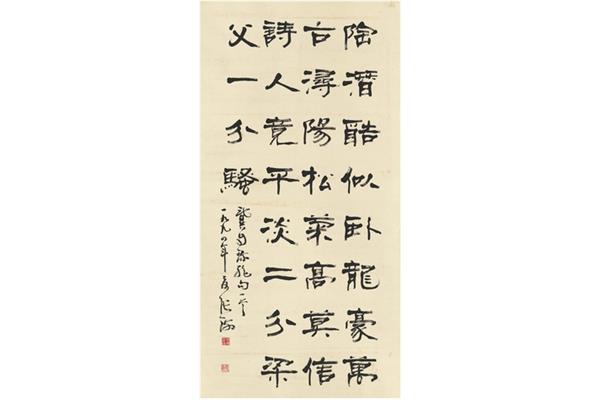 陶潛酷似卧龍豪萬
古潯陽松菊高莫信
詩人竟平淡二分梁
父一分騷
龔自珍絶句一
一九八年